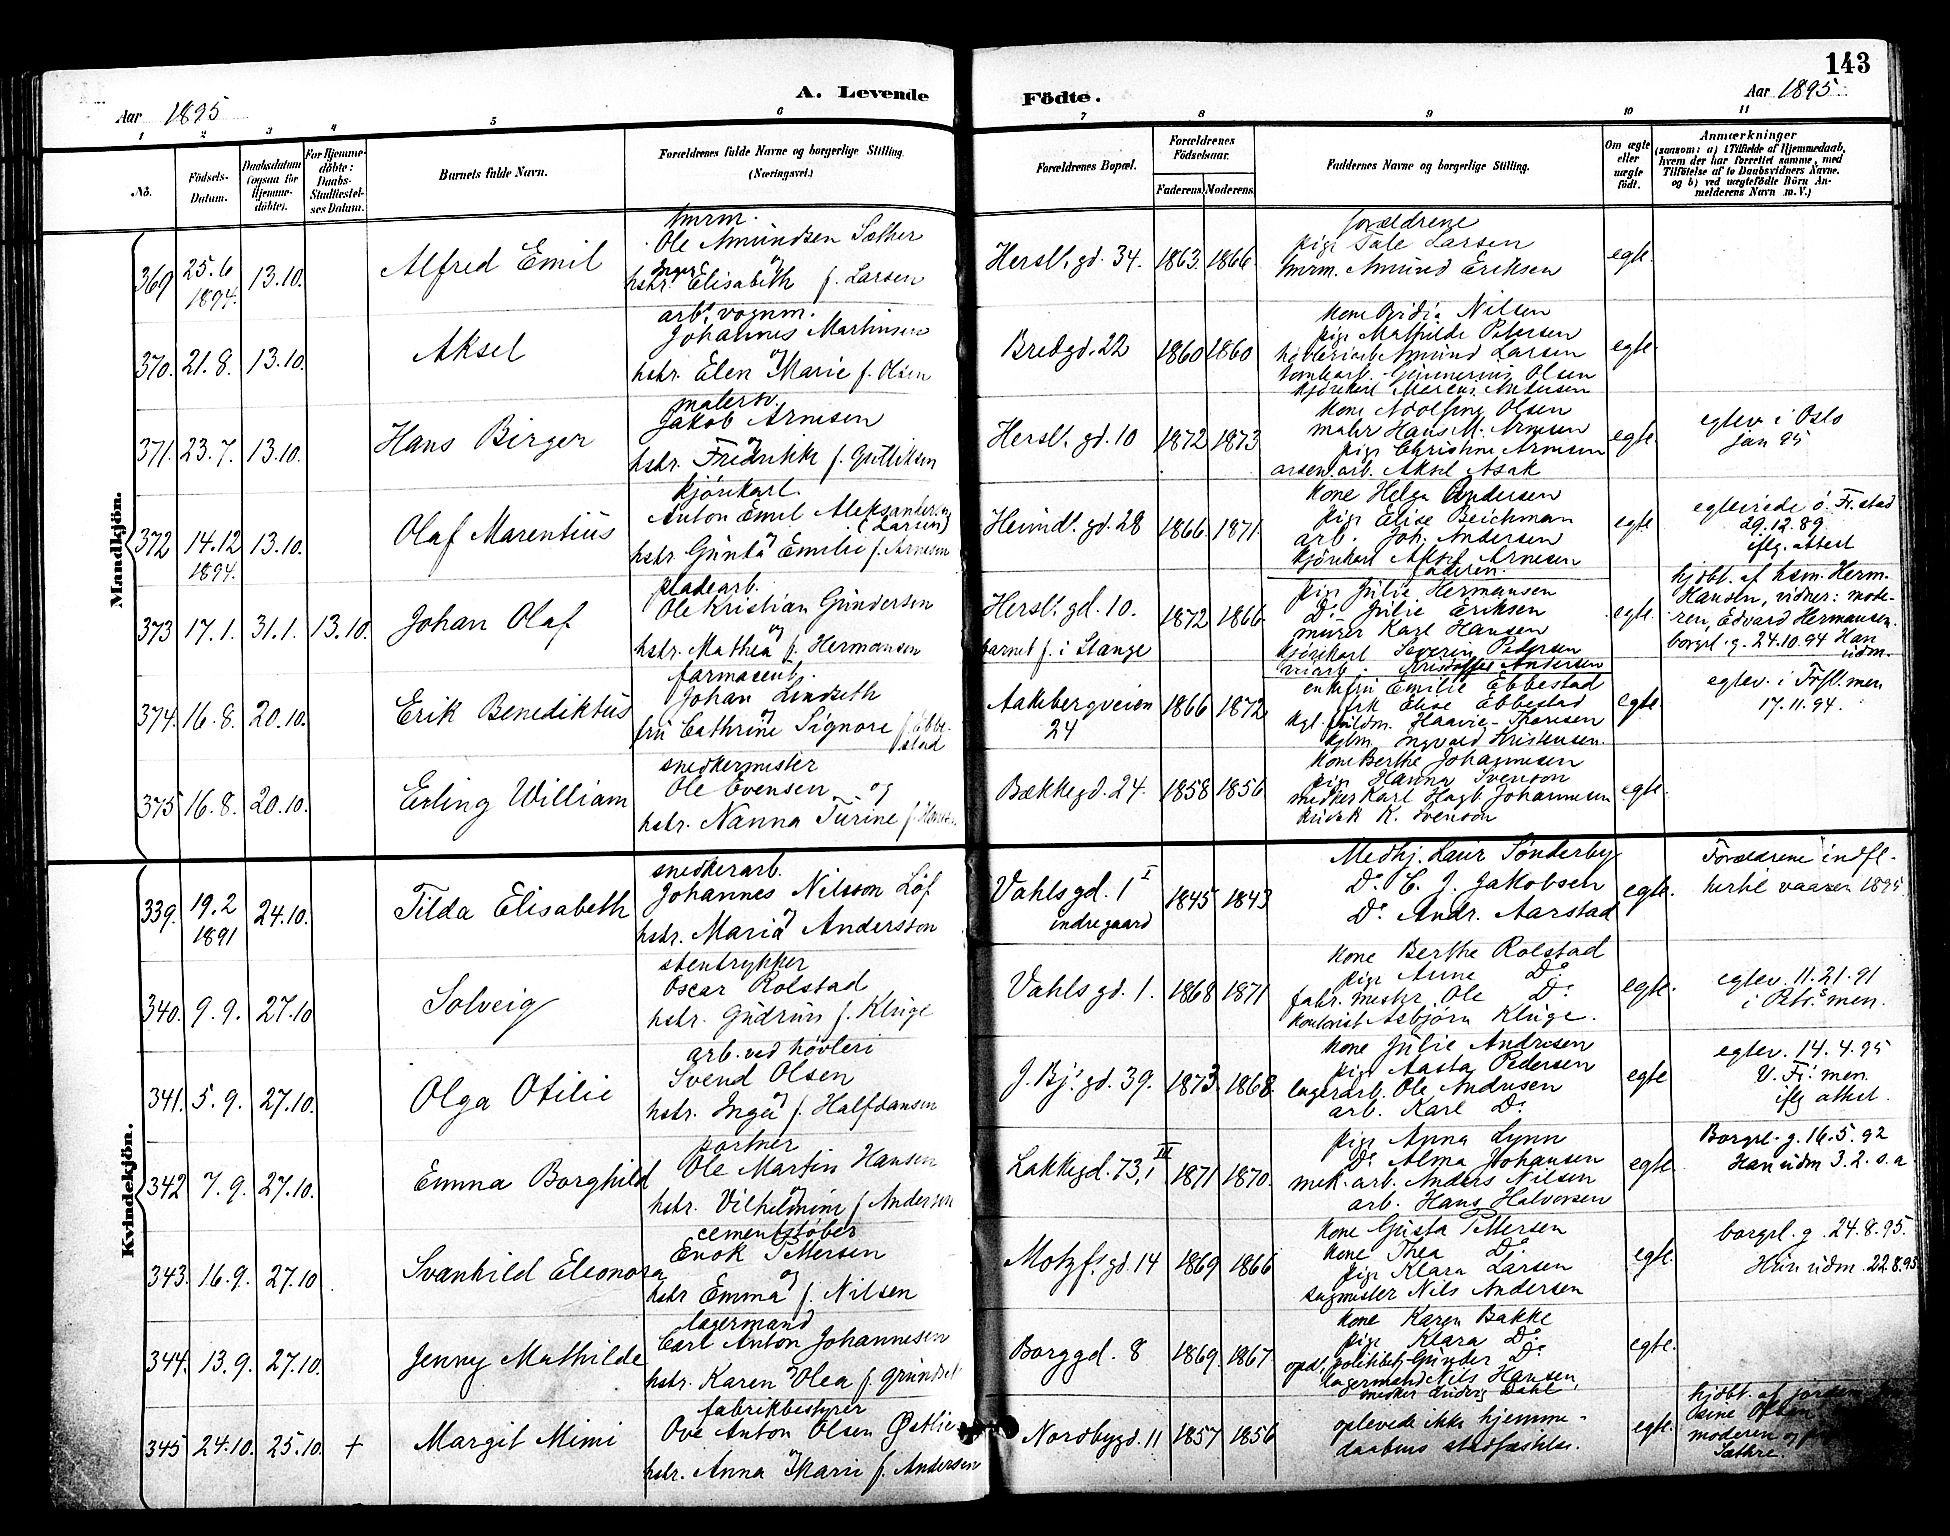 143
A. Levende Födte.
Aar 1895
Aar 1895.
1 2 3 4 5 6 7 8 9 10 11
No.
Födsels-Datum.
Daabsdatum (ogsaa for Hjemmedöbte).
For Hjemmedöbte: Daabs-Stadfæstelses Datum.
Barnets fulde Navn.
Forældrenes fulde Navne og borgerlige Stilling. (Næringsvei.)
Forældrenes Bopæl.
Forældrenes Födselsaar.
Faderens. Moderens.
Faddernes Navne og borgerlige Stilling.
Om ægte eller uægte födt.
Anmærkninger
(saasom: a) i Tilfælde af Hjemmedaab, hvem der har forrettet samme, med Tilföielse af to Daabsvidners Navne. og b) ved uægtefödte Börn Anmelderens Navn m. V.)
Mandkjön.
369 25.6 1894. 13.10. Alfred Emil
tmrm.
Ole Amundsen Sæther
og
hstr. Inga Elisabeth f. Larsen
Hersl. gd. 34. 1863. 1866.
forældrene
pige Tale Larsen
tmrm. Amund Eriksen
egte.
370. 21.8. 13.10. Aksel
arb. vognm.
Johannes Martinsen
og
hstr. Elen Marie f. Olsen
Bredgd. 22 1860 1860
kone Nilsen
pige Mathilde Petersen
høvleriarb. Amund Larsen
tomtearb. Gunnerius Olsen
kjørekarl Marcus Andersen
egte.
371. 23.7. 13.10. Hans Birger
malersv.
Jakob Arnesen
og
hstr. Fredrikke f. Gulliksen
Hersl. gd. 10 1872 1873
kone Adolfine Olsen
maler Hans M. Arnesen
pige Christine Arnesen
arsen. arb. Aksel Asak
egte.
egtev. i Oslo
jan 95
372 14.12 1894. 13.10. Olaf Marentius
kjørekarl
Anton Emil Aleksandersen
(Larsen)
og
hstr. Gunda Emilie f. Arnesen
Heimdl. gd. 28 1866. 1871.
kone Helga Andersen
pige Elise Beichman
arb. Joh. Andersen
kjørekarl Aksel Arnesen
egte
egteviede ø. Fr.stad
29.12.89.
iflg. attest
373 17.1. 31.1. 13.10. Johan Olaf
pladearb.
Ole Kristian Gundersen
og
hstr. Mathea f. Hermansen
Hersl. gd. 10.
barnet f. i Stange
1872 1866
faderen.
pige Julie Hermansen
Do Julie Eriksen
murer Karl Hansen
kjørekarl Severin Pedersen
Kristoffer Andersen
egte.
hjdbt. af hsm. Herm.
Hansen, vidner: mode-
ren, Edvard Hermansen.
borgl. g. 24.10.94 Han
udm.
374. 16.8. 20.10. Erik Benediktus
farmaceut.
Johan Lindseth
og
fru Cathrine Signore f. Ebbe-
stad
Aakebergveien
24
1866 1872
enkefru Emilie Ebbestad
frk Elise Ebbestad
kgl. fuldm. Haavie-Thoresen
Ingvald Kristensen.
egte.
egtev. i Trefl. men
17.11.94.
375 16.8. 20.10. Erling William
snedkermester
Ole Evensen og
hstr. Nanna Turine f. Hansen
Bækkegd. 24. 1858 1856
kone Berthe Johannesen
pige Hanna Svenson
snedker Karl Hagb. Johannesen
K. Svenson
egte.
Kvindekjön.
339. 19.2 1891 24.10. Tilda Elisabeth
snedkerarb.
Johannes Nilsson Löf
og
hstr. Maria Andersson
Vahlsgd. 1 I
indre gaard
1845 1843
Medhj. Laur Sønderby
Do C. J. Jakobsen
Do Andr. Aarstad
egte.
Forældrene indfl.
hertil vaaren 1895
340. 9.9. 27.10 Solveig
stentrykker
Oscar Rolstad
hstr. Gudrun f. Kluge
Vahls gd. 1. 1868 1871
kone Berthe Rolstad
pige Anne Do
fabr. mester Ole Do
kontorist Asbjørn Kluge.
egte.
egtev. 11.21.91
i Petri men.
341. 5.9. 27.10. Olga Otilie
arb. ved høvleri
Svend Olsen
og
hstr. Inga f. Halfdansen
J. Bj. gd. 39. 1873 1868
kone Julie Andresen
pige Aasta Pedersen
lagerarb. Ole Andresen
arb. Karl Do
egte
egtev. 14.4.95
V. Fr. men.
iflg attest.
342 7.9. 27.10. Emma Borghild
portner
Ole Martin Hansen
og
hstr. Vilhelmine f. Andersen
Lakkegd. 73, I III 1871 1870.
pige Anna Lynn
Do Alma Johansen
mek. arb. Anders Nilsen
arb. Hans Halvorsen
egte.
Borgrl. g. 16.5.92
Han udm 3.2. s.a
343. 16.9. 27.10. Svanhild Eleonora
cementstøber
Enok Pettersen
og
hstr Emma f. Nilsen
Motzf. gd. 14 1869 1866
kone Gusta Pettersen
kone Thea Do
pige Klara Larsen
sagmester Nils Andersen
egte.
borgrl. g. 24.8.95.
Hun udm. 22.8.95
344. 13.9. 27.10. Jenny Mathilde
lagermand
Carl Anton Johannesen
og
hstr. Karen Olea f. Grundset
Borggd. 8 1869. 1867.
kone Karen Bakke
pige Klara Do
opd. politibetj. Gunder Do
lagermand Nils Hansen,
snedker Ludvig Dahl
egte.
345 24.10. 25.10. + Margit Mimi
fabrikbestyrer
Ove Anton Olsen Østlie
og
hstr. Anna Marie f. Andersen
Nordbygd. 11 1857 1856
oplevede ikke hjemme-
daabens stadfæstelse.
egte.
hjdbt. af jordem.
Olsen
moderen og
Sæthre.